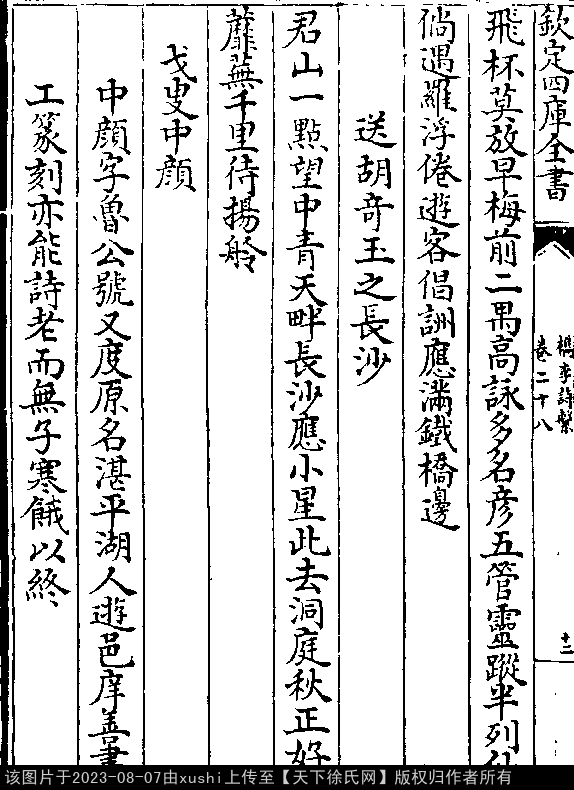 欽定四庫全書
檇李詩繫
卷二十八
十二
飛杯莫放早梅前二㽞高詠多名彦五管靈蹤半列仙
倘遇羅浮倦遊客倡詶應滿鐵橋邊
送胡竒玉之長沙
君山一點望中青天畔長沙應小星此去洞庭秋正好
蘼蕪千里待揚舲
戈叟中顔
中顔字魯公號又度原名湛平湖人遊邑庠善書
工篆刻亦能詩老而無子寒餓以終
该图片于2023-08-07由xushi上传至【天下徐氏网】版权归作者所有